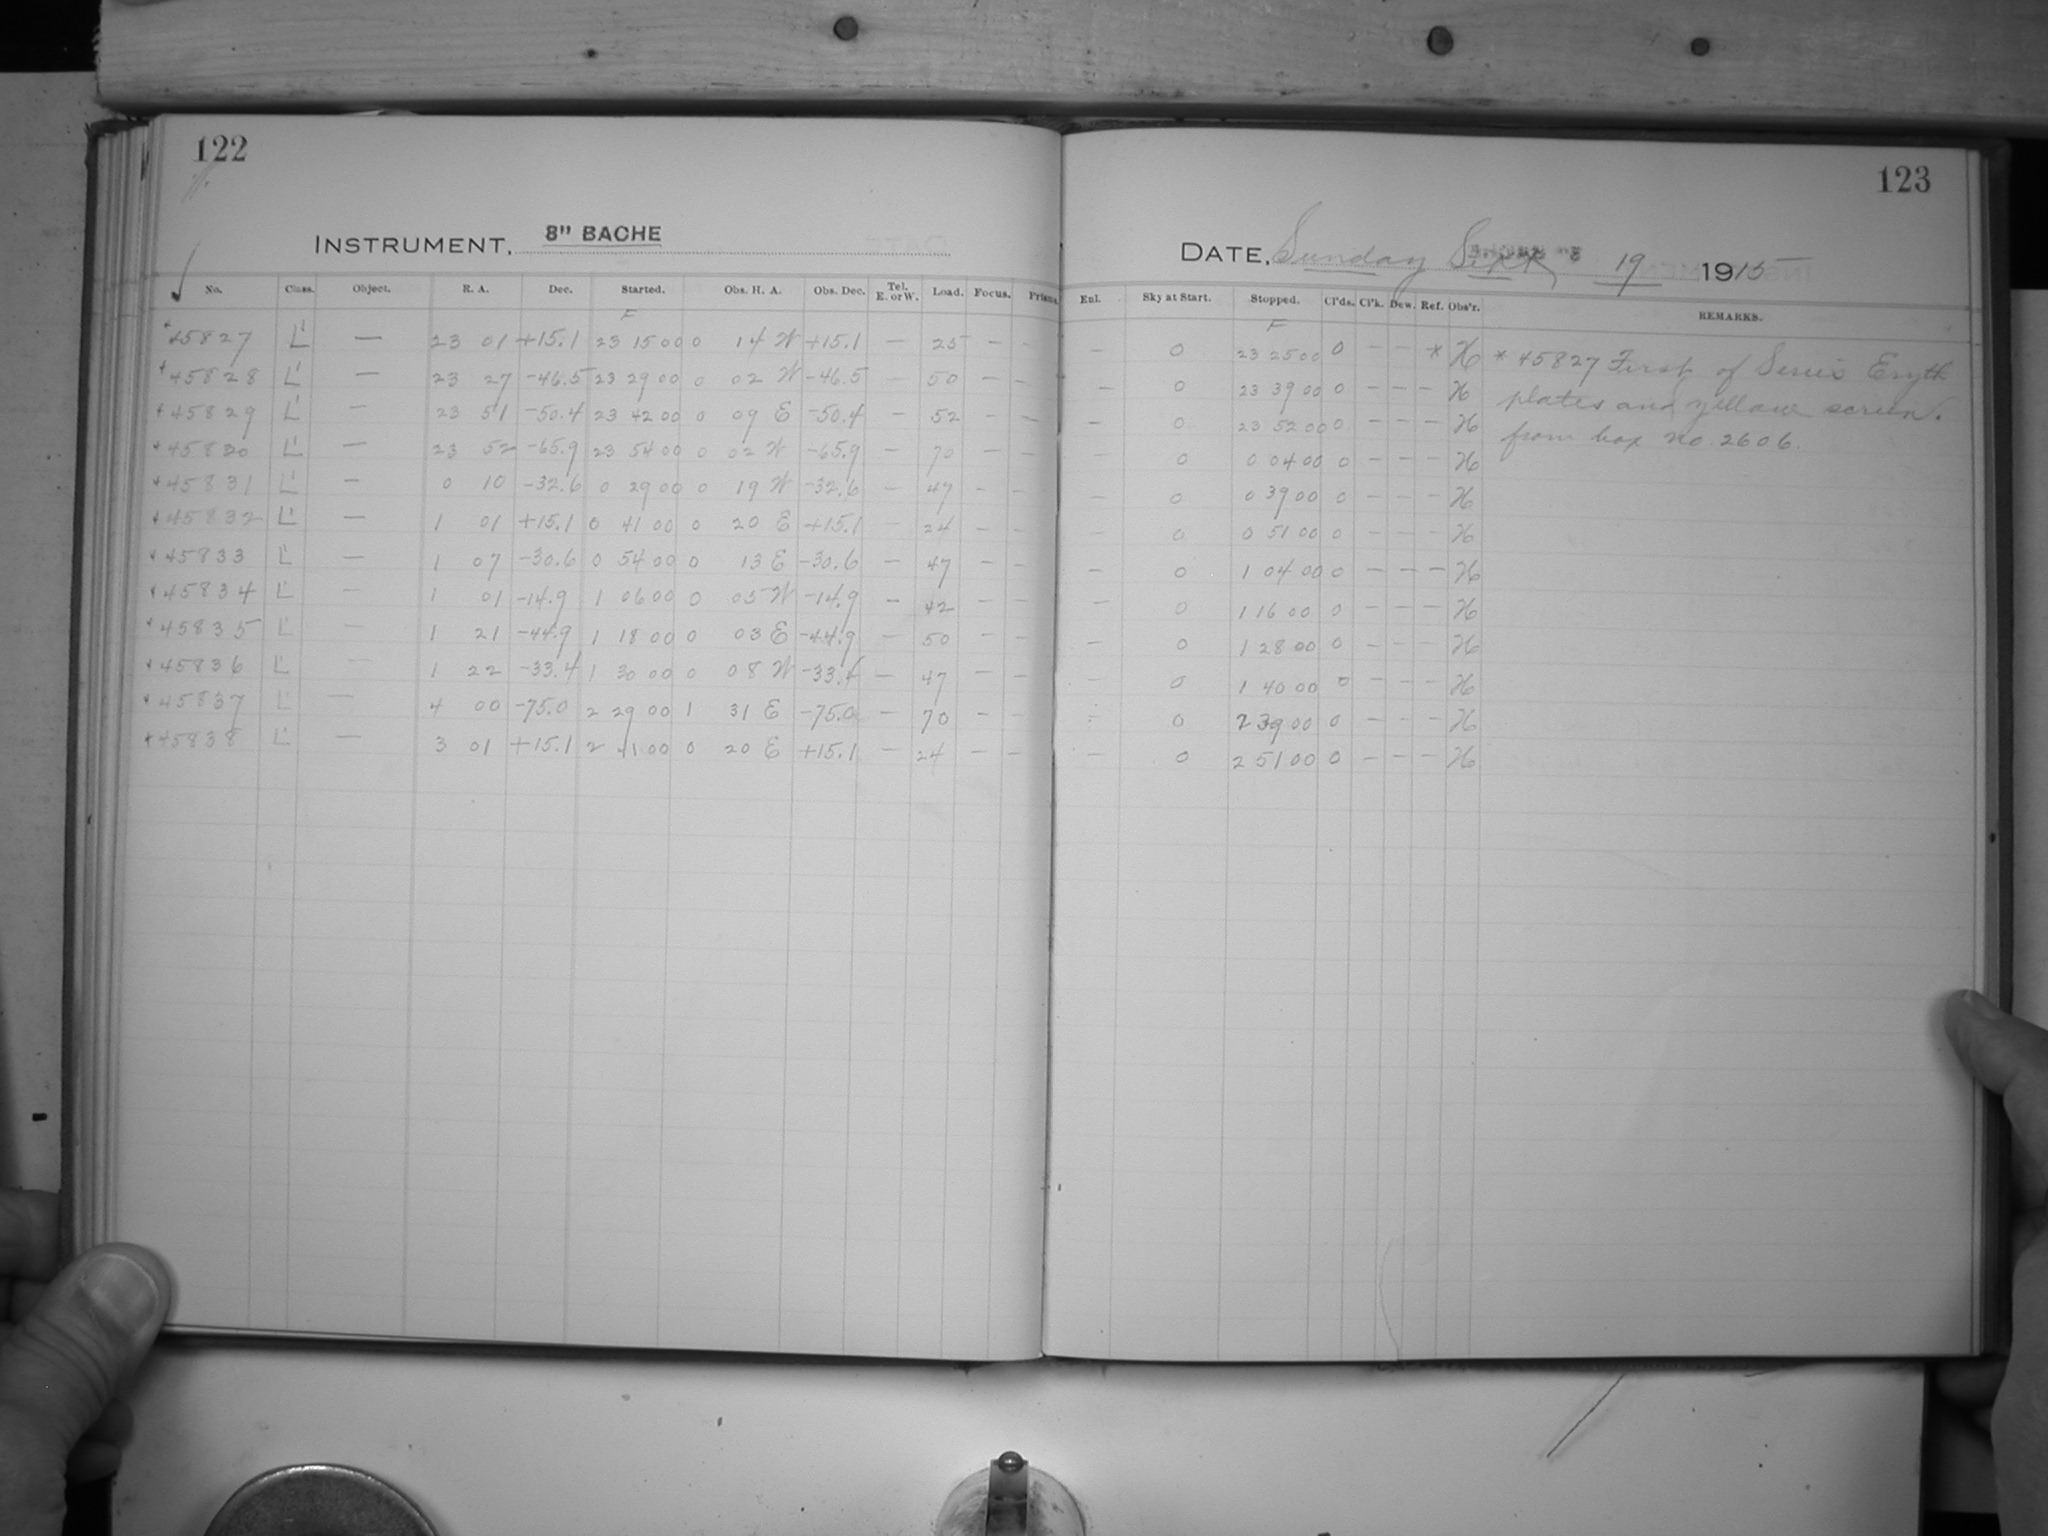 122
INSTRUMENT, 8" BACHE
No. Class. Object. R. A. Dec. Started. Obs. H. A. Obs. Dec. Tel. E. or W. Load. Focus. Prism.
F
45827 L' — 23 01 +15.1 23 15 00 0 14 W +15.1 — 25 - -
45828 L' — 23 27 -46.5 23 29 00 0 02 W -46.5 — 50 - -
45829 L' — 23 51 -50.4 23 42 00 0 09 E -50.4 — 52 - -
45830 L' — 23 52 -65.9 23 54 00 0 02 W -65.9 — 70 - -
45831 L' — 0 10 -32.6 0 29 00 0 19 W -32.6 — 47 - -
45832 L' — 1 01 +15.1 0 41 00 0 20 E +15.1 — 24 - -
45833 L' — 1 07 -30.6 0 54 00 0 13 E -30.6 — 47 - -
45834 L' — 1 01 -14.9 1 06 00 0 05 W -14.9 — 42 - -
45835 L' — 1 21 -44.9 1 18 00 0 03 E -44.9 — 50 - -
45836 L' — 1 22 -33.4 1 30 00 0 08 W -33.4 — 47 - -
45837 L' — 4 00 -75.0 2 29 00 1 31 E -75.0 — 70 - -
45838 L' — 3 01 +15.1 2 41 00 0 20 E +15.1 — 24 - -
123
DATE, Sunday Sept 19 1915
Enl. Sky at Start. Stopped. Cl'ds. Cl'k. Dew. Ref. Obs'r. REMARKS.
F
— 0 23 25 00 0 - - * H * 45827 First of Series Eryth
— 0 23 39 00 0 - - - H plates and yellow screen.
— 0 23 52 00 0 - - - H from box no. 2606.
— 0 0 04 00 0 - - - H
— 0 0 39 00 0 - - - H
— 0 0 51 00 0 - - - H
— 0 1 04 00 0 - - - H
— 0 1 16 00 0 - - - H
— 0 1 28 00 0 - - - H
— 0 1 40 00 0 - - - H
— 0 2 39 00 0 - - - H
— 0 2 51 00 0 - - - H